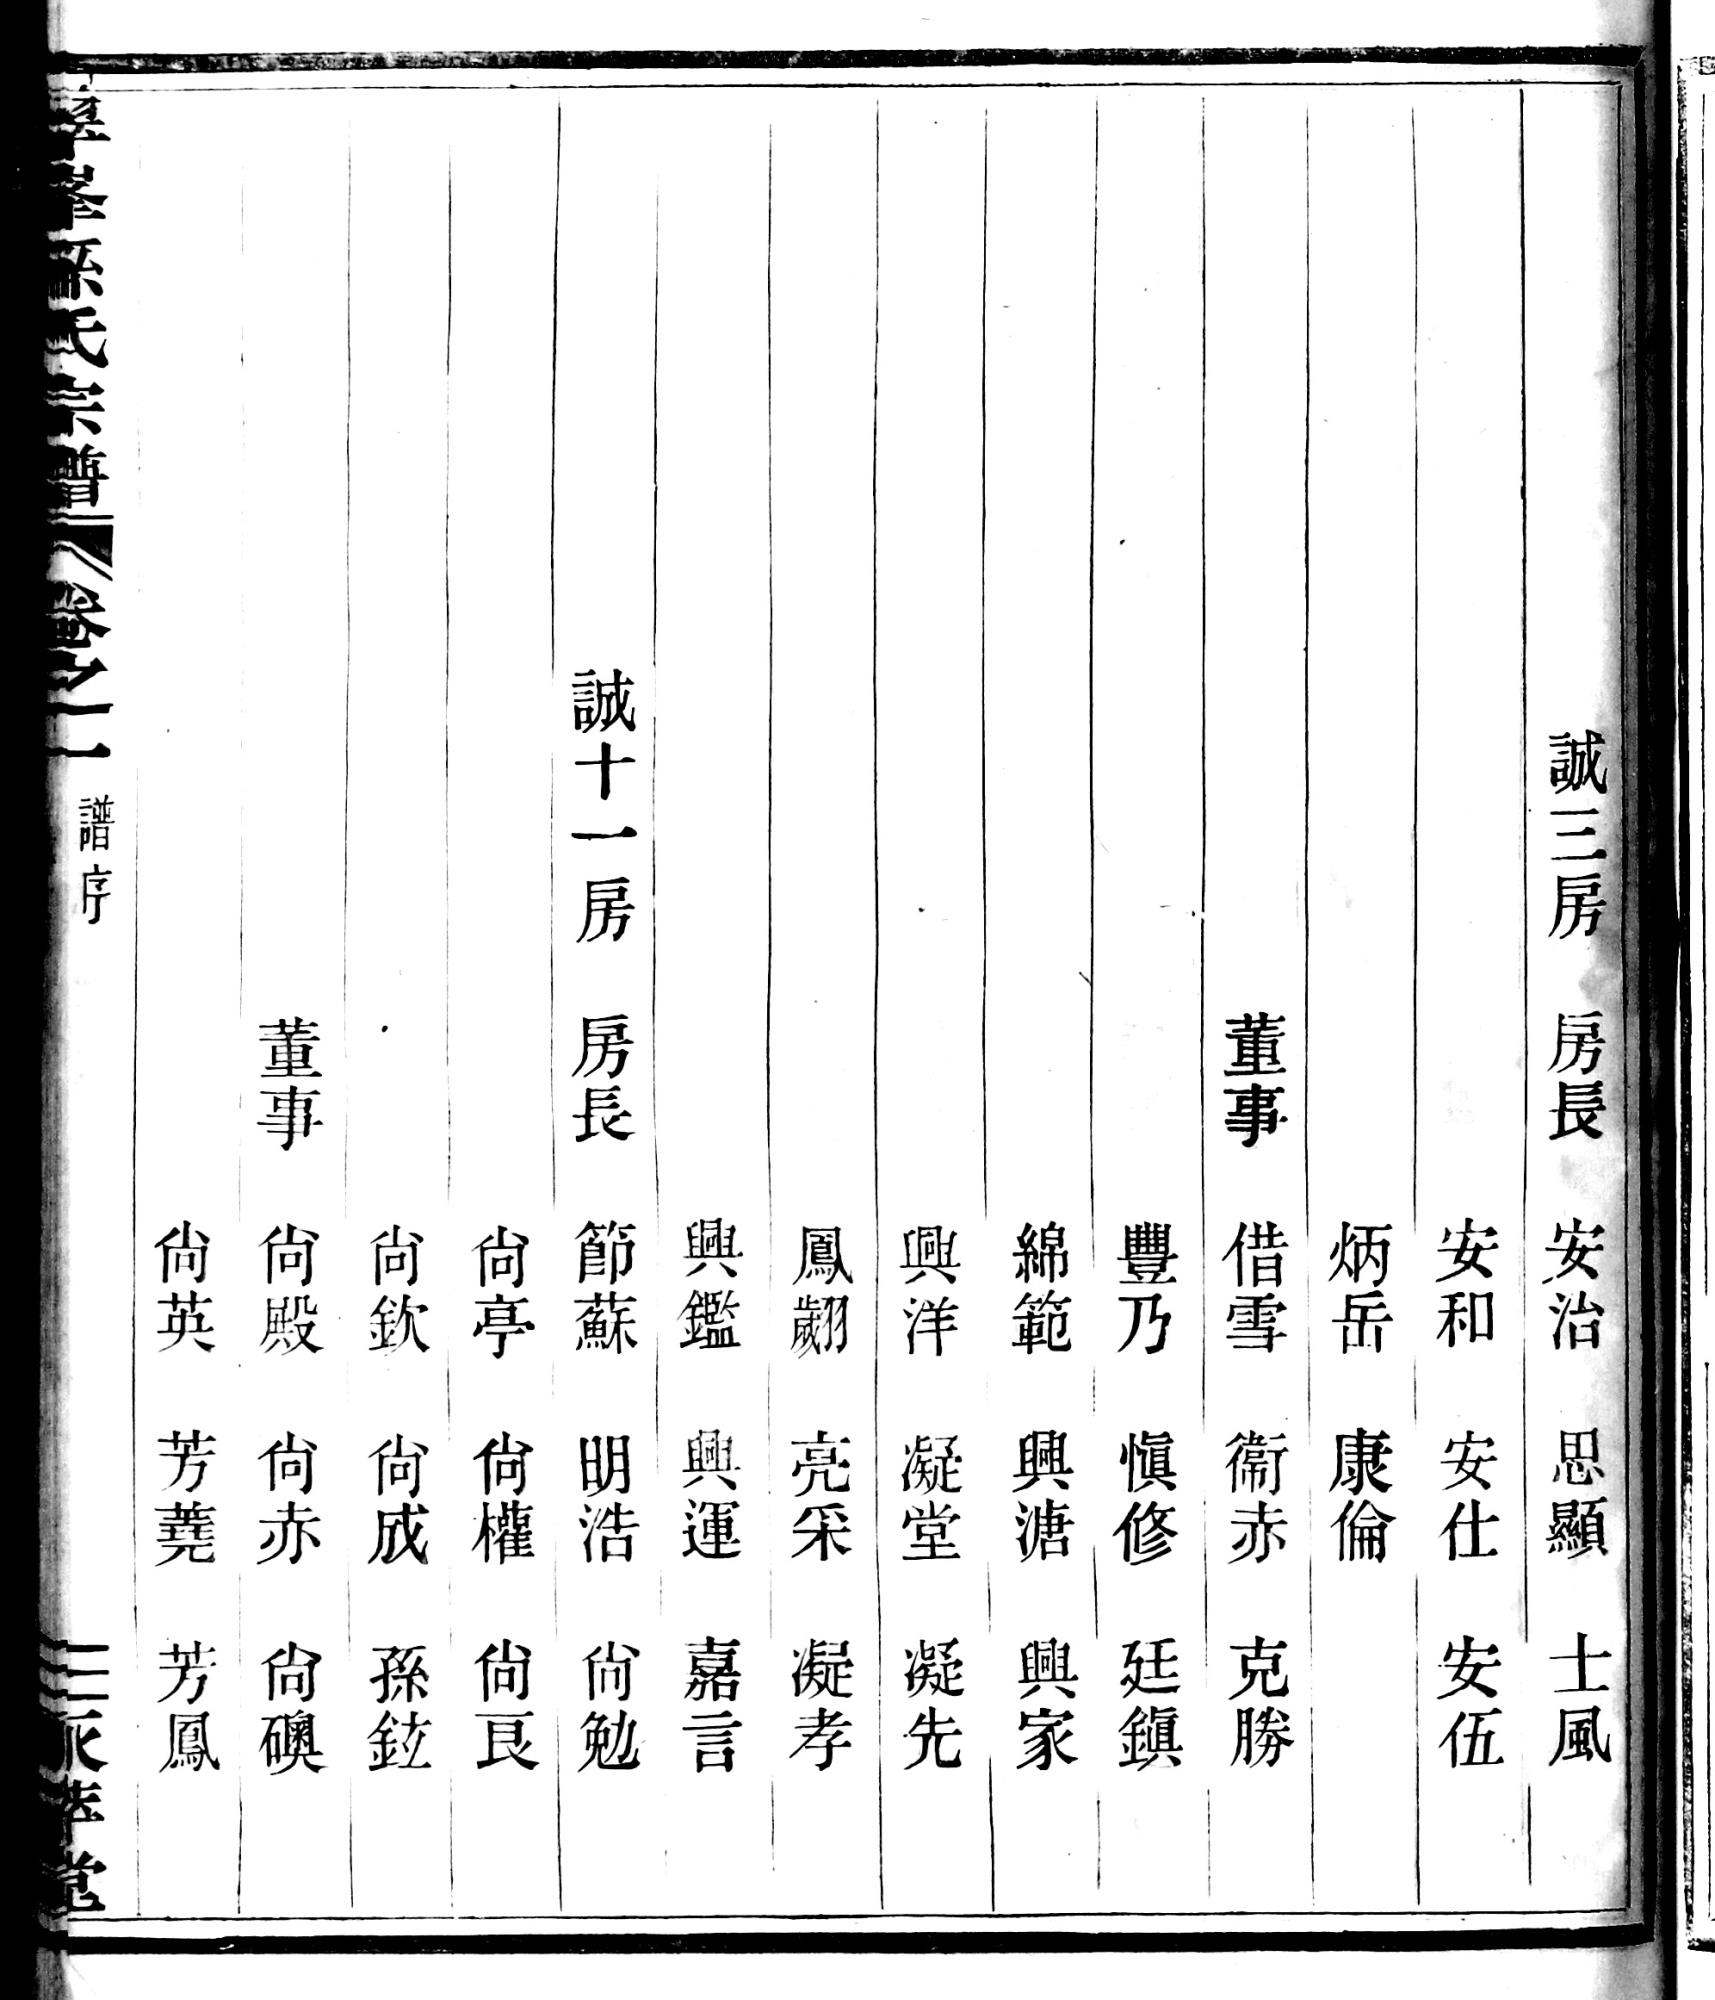 誠三房 房長 安治 思顯 士風
安和 安仕 安伍
炳岳 康倫
董事 借雪 衞赤 克勝
豐乃 愼修 廷鎭
綿範 興溏 興家
興洋 凝堂 凝先
鳳翽 亮采 凝孝
興鑑 興運 嘉言
誠十一房 房長 節蘇 明浩 尙勉
尙亭 尙權 尙艮
尙欽 尙成 孫鉉
董事 尙殿 尙赤 尙礇
尙英 芳蕘 芳鳳
峯孫氏宗譜 卷之一 譜序 萃堂